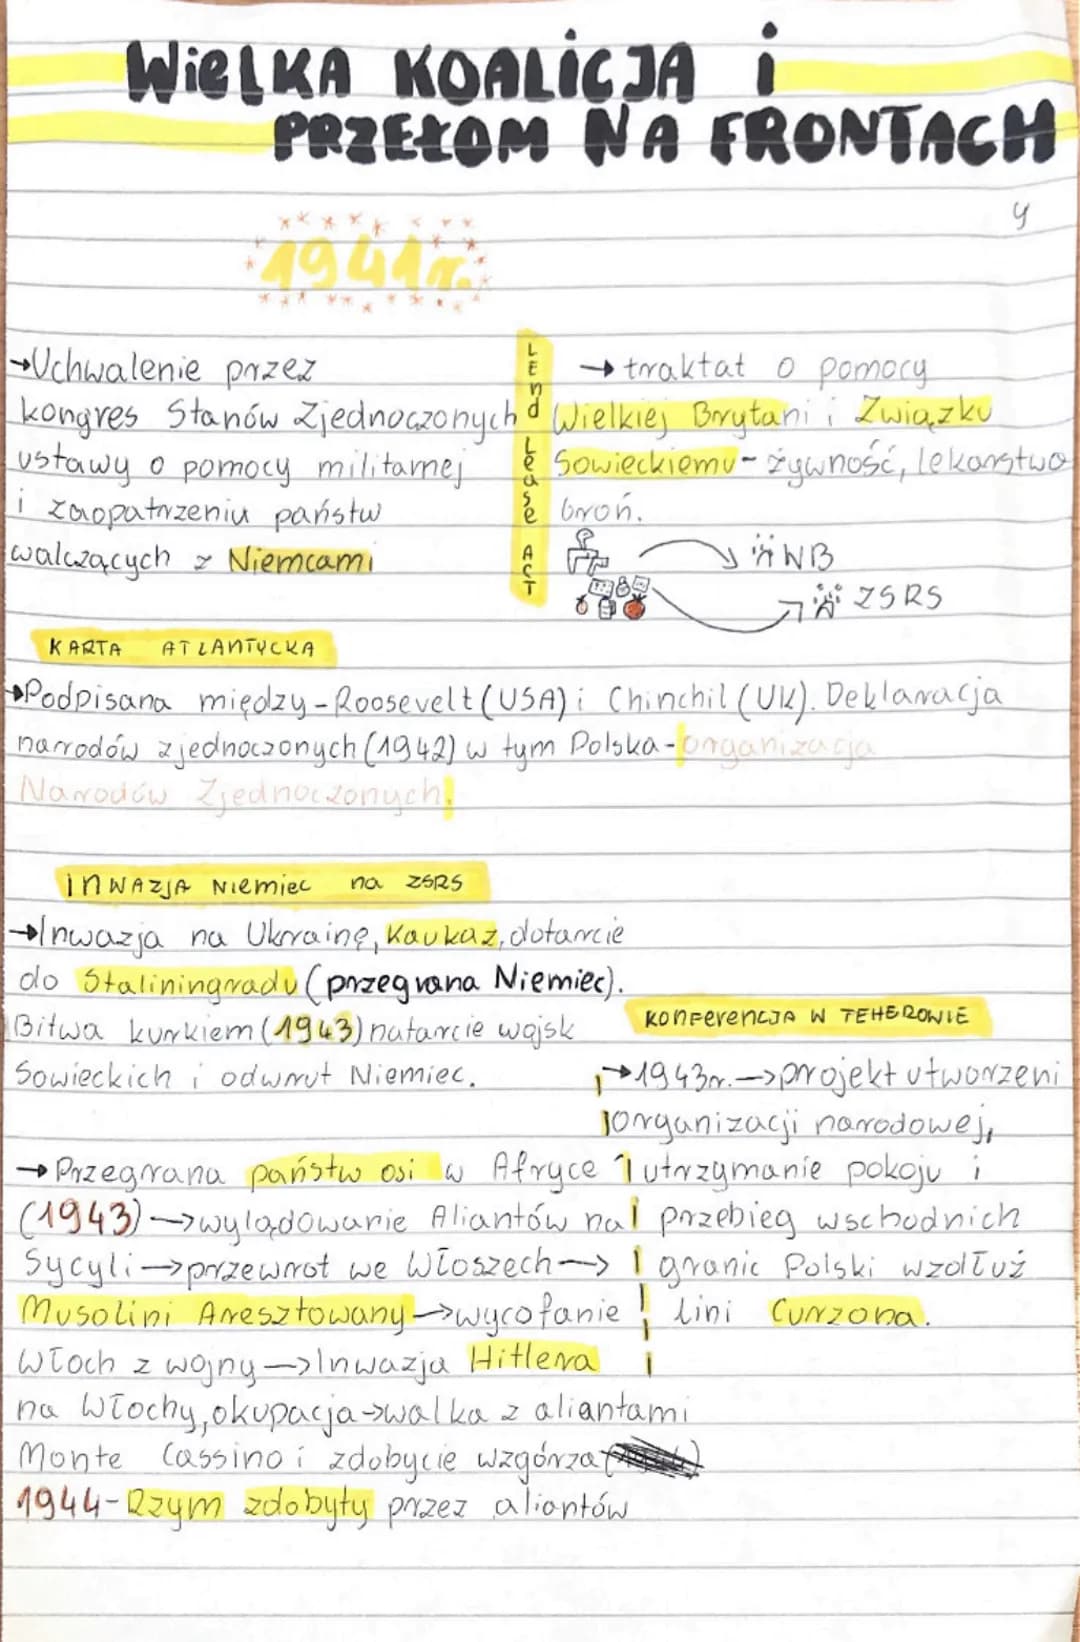 WIELKA KOALICJA i
PRZEŁOM NA FRONTACH
4
1941r.
→Uchwalenie przez
kongres Stanów Zjednoczonych
ustawy o pomocy militarnej
i zaopatrzeniu państw
walczących z Niemcami
LEnd Lease ACT
→ traktat o pomocy
Wielkiej Brytani i Związku
Sowieckiemu - żywność, lekarstwa
broń.
WB
ZSRS
KARTA ATLANTYCKA
→Podpisana między - Roosevelt (USA) i Chinchil (UK). Deklaracja
narodów zjednoczonych (1942) w tym Polska - organizacja
Narodów Zjednoczonych.
INWAZJA Niemiec na ZSRS
→Inwazja na Ukrainę, Kaukaz, dotarcie
do Staliningradu (przegrana Niemiec).
Bitwa kurkiem (1943) natarcie wojsk
Sowieckich i odwrut Niemiec.
KONFERENCJA W TEHEROWIE
→1943r. → projekt utworzeni
organizacji narodowej,
utrzymanie pokoju i
przebieg wschodnich
granic Polski wzdłuż
lini Curzona.
→ Przegrana państw osi w Afryce
(1943) → wylądowanie Aliantów na
Sycyli → przewrot we Włoszech →
Musolini Aresztowany → wycofanie
Włoch z wojny → Inwazja Hitlera
na Włochy, okupacja → walka z aliantami
Monte Cassino i zdobycie wzgórza
1944 - Rzym zdobyty przez aliantów